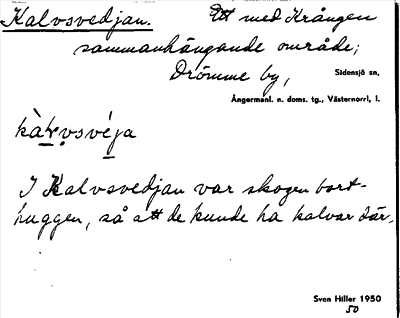 Kalvsvedjan. Ett med Krången
sammanhängande område;
Drömme by, Sidensjö sn,
Ångermanl. n. doms. tg., Västernorrl. l.
I Kalvsvedjan var skogen bort-
huggen, så att de kunde ha kalvar där.
Sven Hiller 1950
50